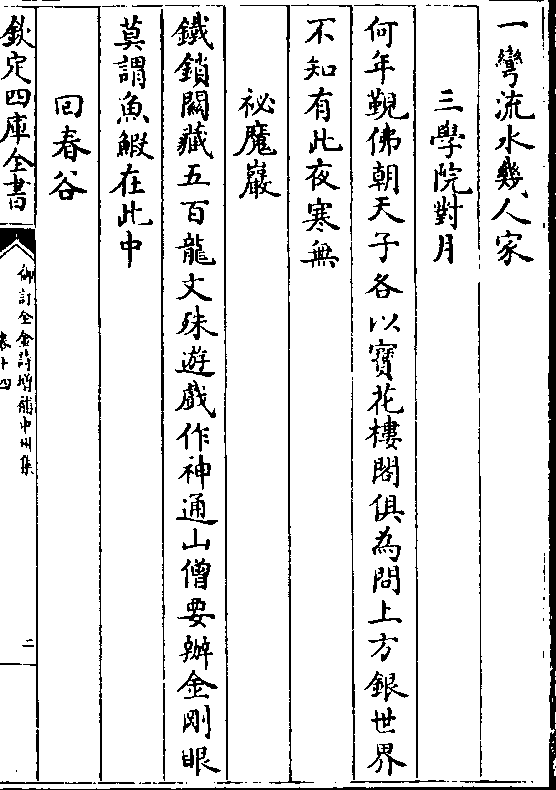 一彎流水幾人家
三學院對月
何年覲佛朝天子各以寶花樓閣俱為問上方銀世界
不知有此夜寒無
祕魔巖
鐵鎖關藏五百龍文殊遊戲作神通山僧要辦金剛眼
莫謂魚鰕在此中
回春谷
欽定四庫全書
御訂全金詩増補中州集
卷十四
二